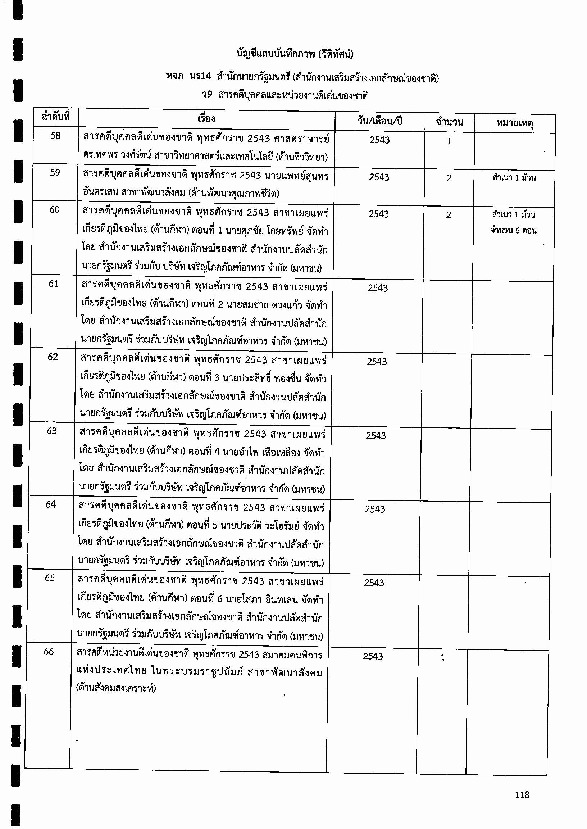 บัญชีแถบบันทึกภาพ (วีดิทัศน์)
หจภ นร14 สำนักนายกรัฐมนตรี (สำนักงานเสริมสร้างเอกลักษณ์ของชาติ)
ว9 สารคดีบุคคลและหน่วยงานดีเด่นของชาติ
ลำดับที่ เรื่อง วัน/เดือน/ปี จำนวน หมายเหตุ
58 สารคดีบุคคลดีเด่นของชาติ พุทธศักราช 2543 ศาสตราจารย์ 2543 1
ดร.ทศพร วงศ์รัตน์ สาขาวิทยาศาสตร์และเทคโนโลยี (ด้านชีววิทยา)
59 สารคดีบุคคลดีเด่นของชาติ พุทธศักราช 2543 นายแพทย์สุนทร 2543 2 สำเนา 1 ม้วน
อันตรเสน สาขาพัฒนาสังคม (ด้านพัฒนาคุณภาพชีวิต)
60 สารคดีบุคคลดีเด่นของชาติ พุทธศักราช 2543 สาขาเผยแพร่ 2543 2 สำเนา 1 ม้วน
เกียรติภูมิของไทย (ด้านกีฬา) ตอนที่ 1 นายศุภชัย โกยทรัพย์ จัดทำ จำนวน 6 ตอน
โดย สำนักงานเสริมสร้างเอกลักษณ์ของชาติ สำนักงานปลัดสำนัก
นายกรัฐมนตรี ร่วมกับ บริษัท เจริญโภคภัณฑ์อาหาร จำกัด (มหาชน)
61 สารคดีบุคคลดีเด่นของชาติ พุทธศักราช 2543 สาขาเผยแพร่ 2543
เกียรติภูมิของไทย (ด้านกีฬา) ตอนที่ 2 นายสมชาย ดวงแก้ว จัดทำ
โดย สำนักงานเสริมสร้างเอกลักษณ์ของชาติ สำนักงานปลัดสำนัก
นายกรัฐมนตรี ร่วมกับบริษัท เจริญโภคภัณฑ์อาหาร จำกัด (มหาชน)
62 สารคดีบุคคลดีเด่นของชาติ พุทธศักราช 2543 สาขาเผยแพร่ 2543
เกียรติภูมิของไทย (ด้านกีฬา) ตอนที่ 3 นายประสิทธิ์ ทองชื่น จัดทำ
โดย สำนักงานเสริมสร้างเอกลักษณ์ของชาติ สำนักงานปลัดสำนัก
นายกรัฐมนตรี ร่วมกับบริษัท เจริญโภคภัณฑ์อาหาร จำกัด (มหาชน)
63 สารคดีบุคคลดีเด่นของชาติ พุทธศักราช 2543 สาขาเผยแพร่ 2543
เกียรติภูมิของไทย (ด้านกีฬา) ตอนที่ 4 นายอำไพ เสือเหลือง จัดทำ
โดย สำนักงานเสริมสร้างเอกลักษณ์ของชาติ สำนักงานปลัดสำนัก
นายกรัฐมนตรี ร่วมกับบริษัท เจริญโภคภัณฑ์อาหาร จำกัด (มหาชน)
64 สารคดีบุคคลดีเด่นของชาติ พุทธศักราช 2543 สาขาเผยแพร่ 2543
เกียรติภูมิของไทย (ด้านกีฬา) ตอนที่ 5 นายประวัติ วะโฮรัมย์ จัดทำ
โดย สำนักงานเสริมสร้างเอกลักษณ์ของชาติ สำนักงานปลัดสำนัก
นายกรัฐมนตรี ร่วมกับบริษัท เจริญโภคภัณฑ์อาหาร จำกัด (มหาชน)
65 สารคดีบุคคลดีเด่นของชาติ พุทธศักราช 2543 สาขาเผยแพร่ 2543
เกียรติภูมิของไทย (ด้านกีฬา) ตอนที่ 6 นายโสภา อินทเสน จัดทำ
โดย สำนักงานเสริมสร้างเอกลักษณ์ของชาติ สำนักงานปลัดสำนัก
นายกรัฐมนตรี ร่วมกับบริษัท เจริญโภคภัณฑ์อาหาร จำกัด (มหาชน)
66 สารคดีหน่วยงานดีเด่นของชาติ พุทธศักราช 2543 สมาคมคนพิการ 2543
แห่งประเทศไทย ในพระบรมราชูปถัมภ์ สาขาพัฒนาสังคม
(ด้านสังคมสงเคราะห์)
118